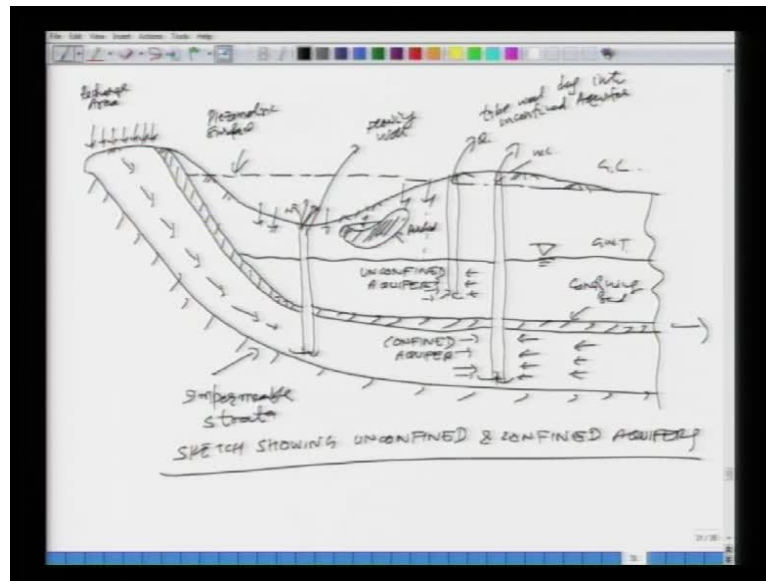 File Edit View Insert Actions Tools Help
Recharge
Area
Piezometric
Surface
flowing
well
tube well dug into
unconfined Aquifer
Q
W.L.
G.L.
G.W.T.
UNCONFINED
AQUIFER
Confining
Bed
CONFINED
AQUIFER
Impermeable
strata
SKETCH SHOWING UNCONFINED & CONFINED AQUIFERS